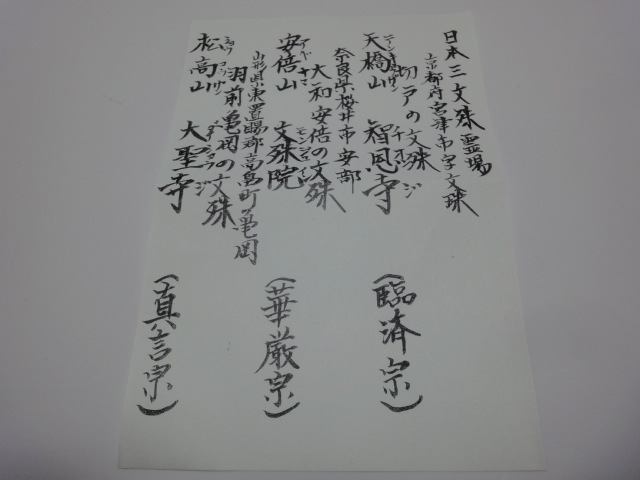 日本三文殊霊場
京都府宮津市字文珠
切戸の文殊
天橋山 智恩寺 チオンジ
奈良県桜井市安部
大和安倍の文殊
安倍山 文殊院 モンジュイン
山形県東置賜郡高畠町亀岡
羽前亀岡の文殊
松高山 大聖寺 ダイショウジ
(臨済宗)
(華厳宗)
(真言宗)